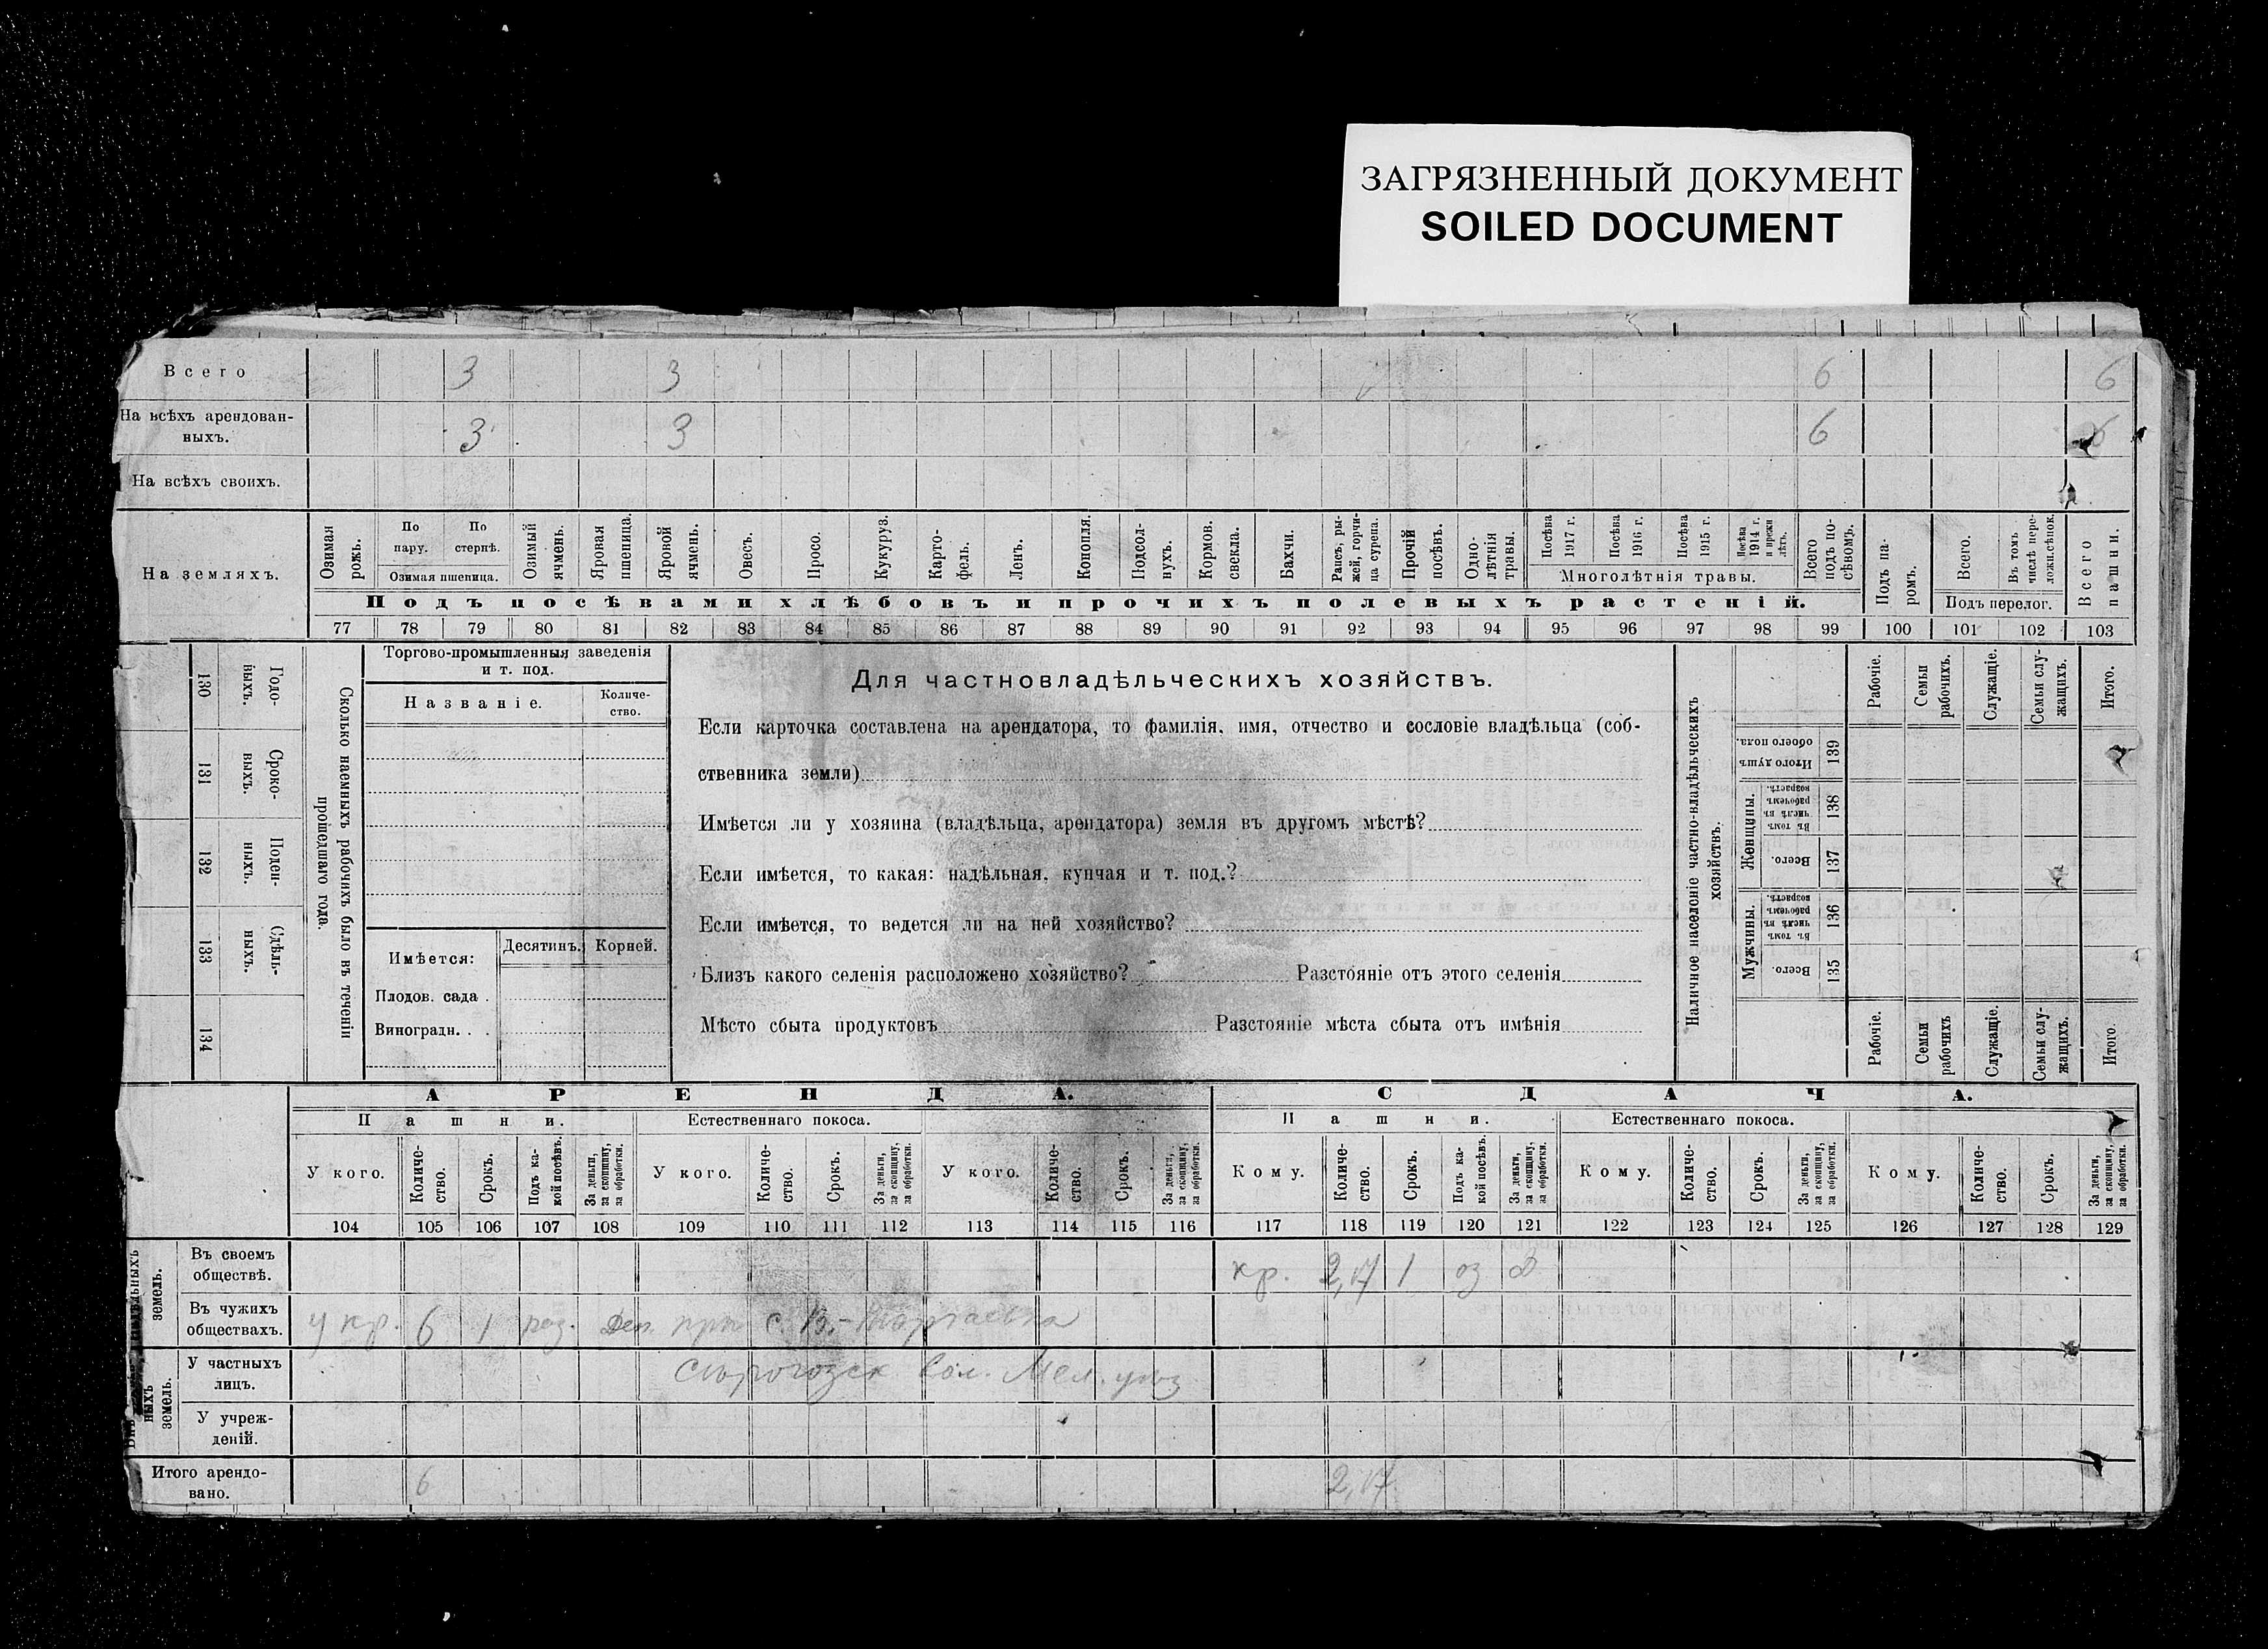 ЗАГРЯЗНЕННЫЙ ДОКУМЕНТ
SOILED DOCUMENT
Всего 3 3 6 6
На всѣхъ арендован-
ныхъ. 3 3 6 6
На всѣхъ своихъ.
На земляхъ.
Озимая рожь.
По пару.
По стернѣ.
Озимая пшеница.
Озимый ячмень.
Яровая пшеница.
Яровой ячмень.
Овесъ.
Просо.
Кукуруз.
Карто-фель.
Ленъ.
Конопля.
Подсол-нухъ.
Кормов. свекла.
Бахчи.
Рапсъ, ры-жей, горчи-ца сурепа.
Прочій посѣвъ.
Одно-лѣтнія травы.
Посѣва 1917 г.
Посѣва 1916 г.
Посѣва 1915 г.
Посѣва 1914 г. и прежн лѣтъ.
Многолѣтнія травы.
Всего подъ по-сѣвомъ.
Подъ па-ромъ.
Всего.
Въ томъ числѣ пере-ложн.сѣнок.
Подъ перелог.
Всего пашни.
Подъ посѣвами хлѣбовъ и прочихъ полевыхъ растеній.
77 78 79 80 81 82 83 84 85 86 87 88 89 90 91 92 93 94 95 96 97 98 99 100 101 102 103
130 Годо-ныхъ.
131 Сроко-ныхъ.
132 Поден-ныхъ.
133 Сдѣль-ныхъ.
134
Сколько наемныхъ рабочихъ было въ теченіи прошедшаго года.
Торгово-промышленныя заведенія
и т. под.
Названіе.
Количе-
ство.
Имѣется:
Десятинъ.
Корней.
Плодов. сада .
Виноградн. . .
Для частновладѣльческихъ хозяйствъ.
Если карточка составлена на арендатора, то фамилія, имя, отчество и сословіе владѣльца (соб-
ственника земли)
Имѣется ли у хозяина (владѣльца, арендатора) земля въ другомъ мѣстѣ?
Если имѣется, то какая: надѣльная, купчая и т. под.?
Если имѣется, то ведется ли на ней хозяйство?
Близъ какого селенія расположено хозяйство? Разстояніе отъ этого селенія
Мѣсто сбыта продуктовъ Разстояніе мѣста сбыта отъ имѣнія
Наличное населеніе частно-владѣльческихъ хозяйствъ.
Рабочіе.
Семьи рабочихъ.
Служащіе.
Семьи слу-жащихъ.
Итого.
Итого душъ обоего пола. 139
Женщины.
Въ томъ числѣ въ рабочемъ возрастѣ. 138
Всего. 137
Мужчины.
Въ томъ числѣ въ рабочемъ возрастѣ. 136
Всего. 135
Рабочіе.
Семьи рабочихъ
Служащіе.
Семьи слу-жащихъ.
Итого.
АРЕНДА.
СДАЧА.
Пашни.
Естественнаго покоса.
Пашни.
Естественнаго покоса.
У кого.
Количе-ство.
Срокъ.
Подъ ка-кой посѣвъ.
За деньги, за скопщину, за обработки.
У кого.
Количе-ство.
Срокъ.
За деньги, за скопщину, за обработки.
У кого.
Количе-ство.
Срокъ.
За деньги, за скопщину, за обработки.
Кому.
Количе-ство.
Срокъ.
Подъ ка-кой посѣвъ.
За деньги, за скопщину, за обработки.
Кому.
Количе-ство.
Срокъ.
За деньги, за скопщину, за обработки.
Кому.
Количе-ство.
Срокъ.
За деньги, за скопщину, за обработки.
104 105 106 107 108 109 110 111 112 113 114 115 116 117 118 119 120 121 122 123 124 125 126 127 128 129
земель.
Въ своемъ
обществѣ. кр. 2,17 1 оз
Въ чужихъ
обществахъ. у кр. 6 1 при с.
ныхъ земель.
У частныхъ
лицъ. вол. Мел. уѣз
У учреж-
деній.
Итого арендо-
вано. 6 2,17